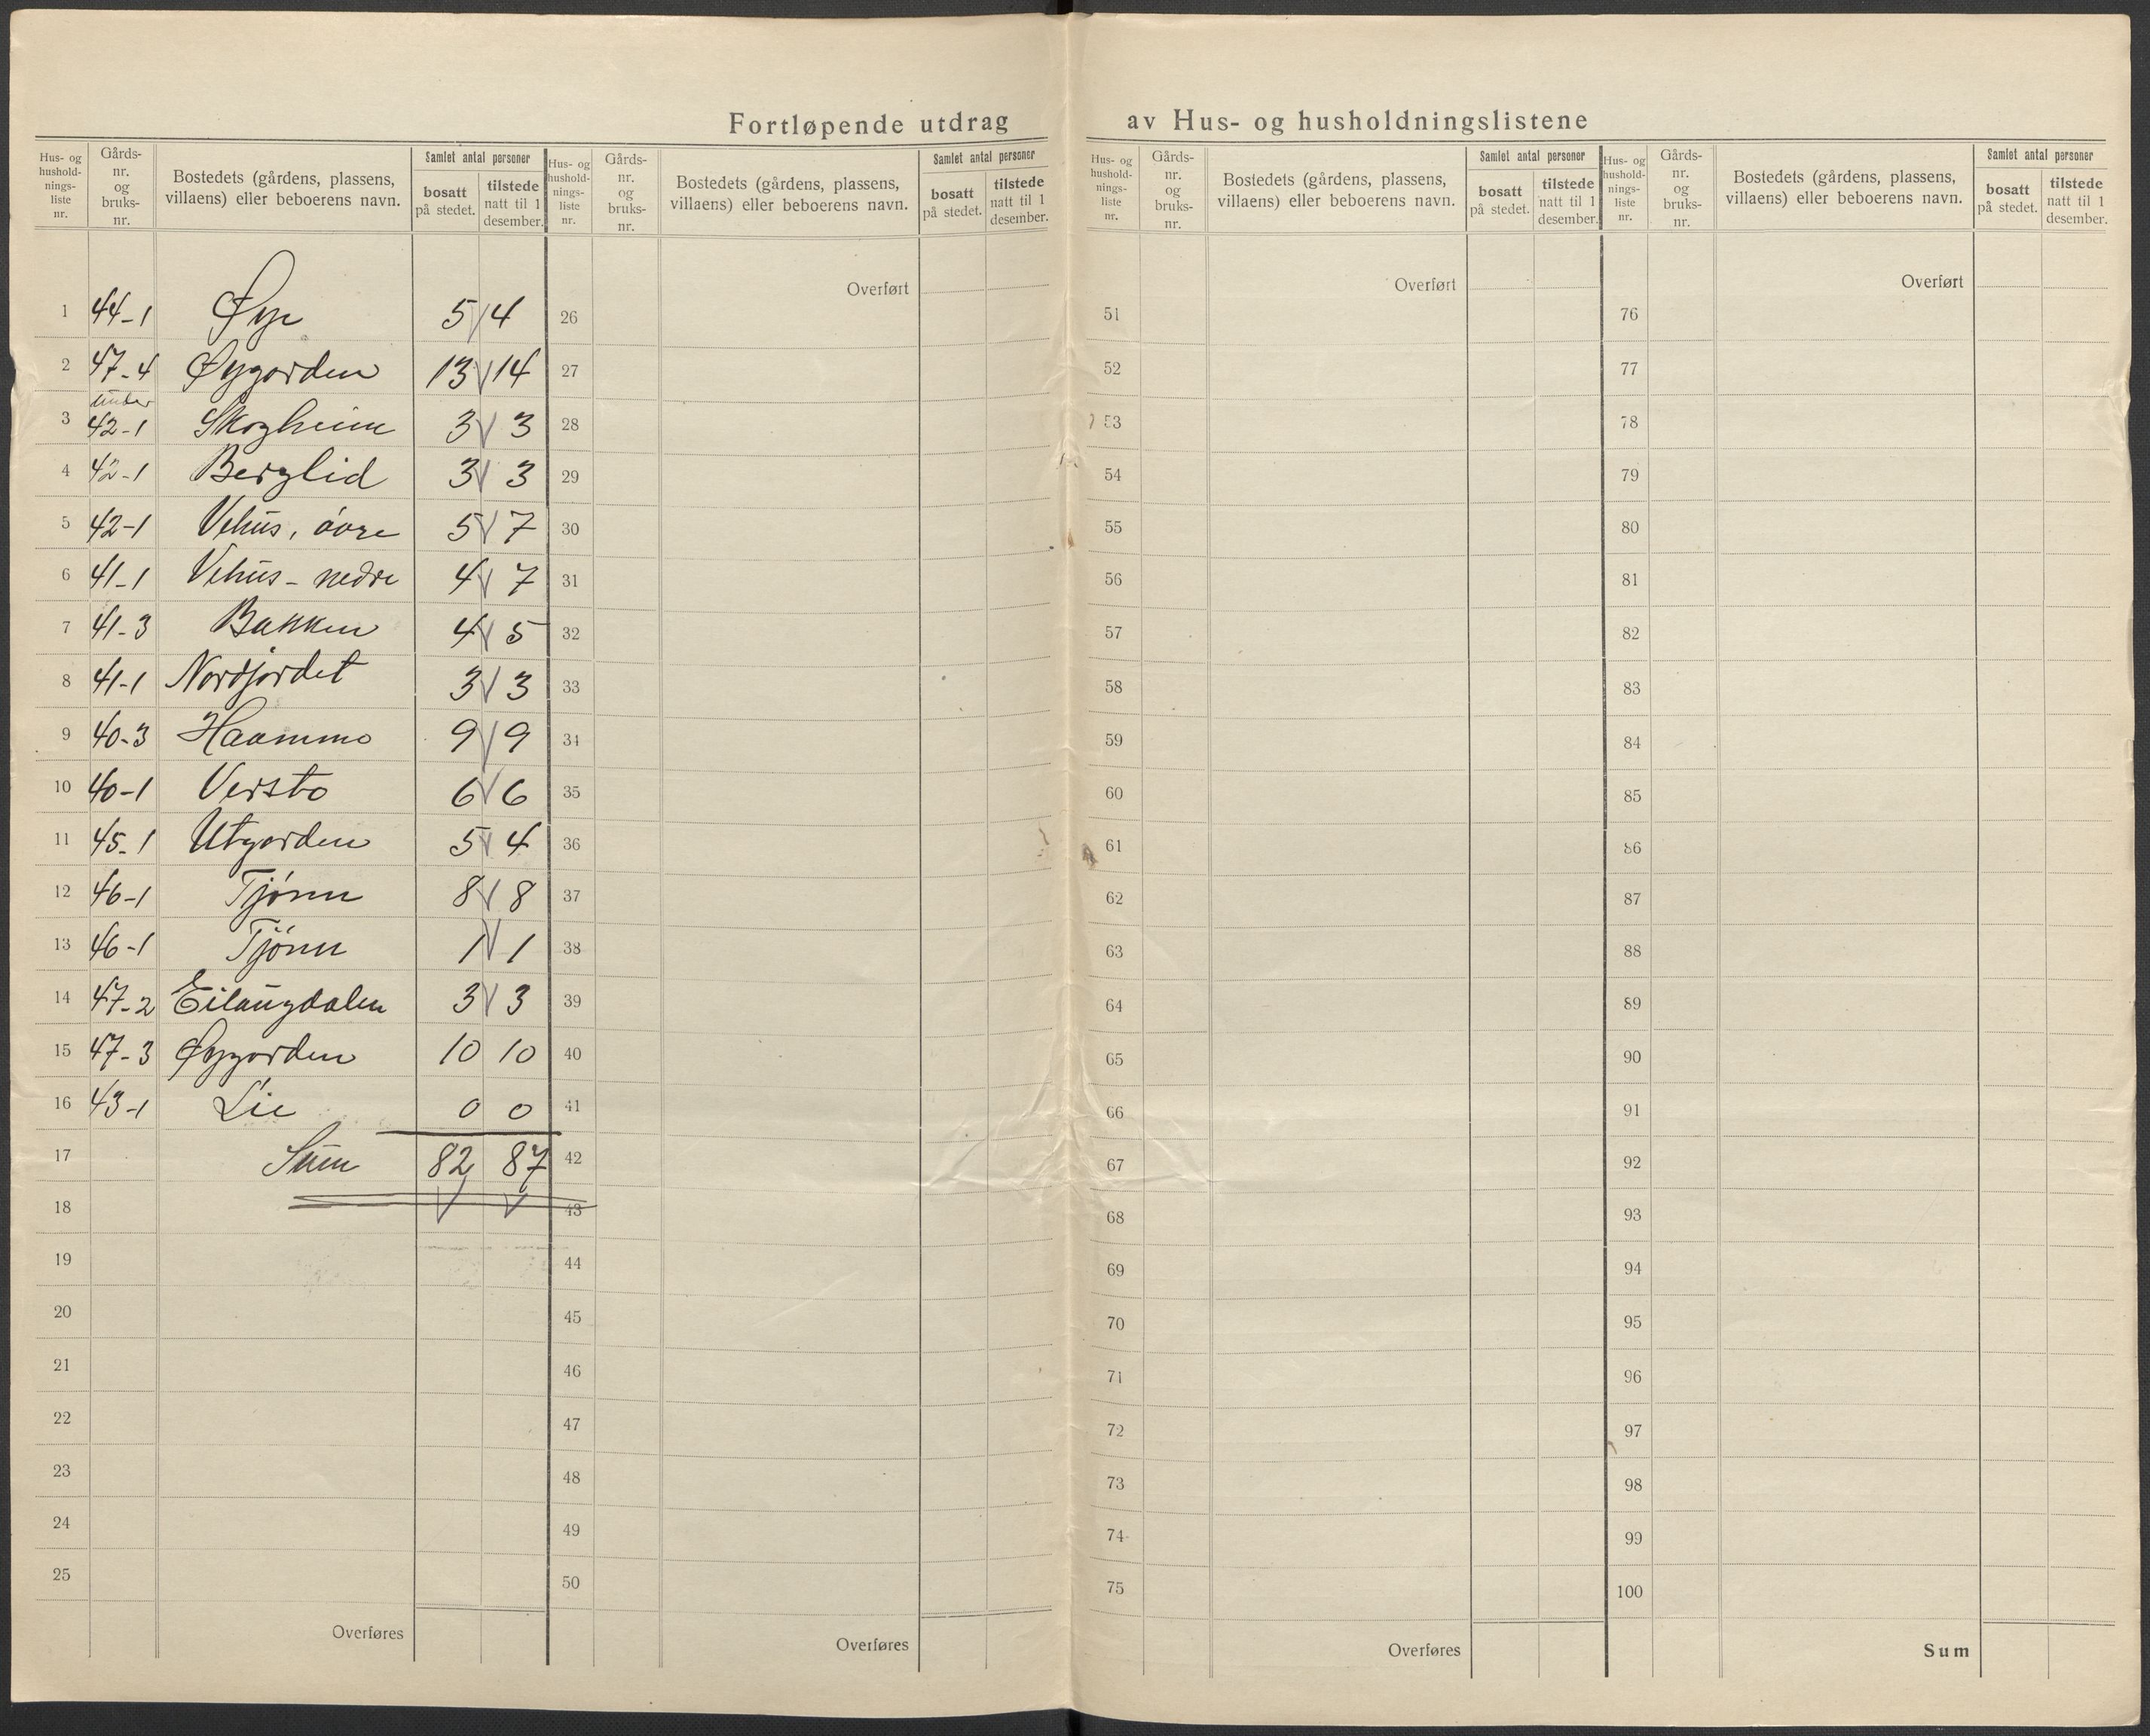 Fortløpende utdrag av Hus- og husholdningslistene
Hus- og hushold-nings-liste nr. | Gårds-nr. og bruks-nr. | Bostedets (gårdens, plassens, villaens) eller beboerens navn. | Samlet antal personer | bosatt på stedet. | tilstede natt til 1 desember.
1 44-1 Øye 5 4
2 47-4 Øygarden 13 14
3 under 42-1 Skogheim 3 3
4 42-1 Berglid 3 3
5 42-1 Vehus, övre 5 7
6 41-1 Vehus - nedre 4 7
7 41-3 Bakken 4 5
8 41-1 Nordjordet 3 3
9 40-3 Haammo 9 9
10 40-1 Versto 6 6
11 45-1 Utgarden 5 4
12 46-1 Tjönn 8 8
13 46-1 Tjönn 1 1
14 47-2 Eilaugdalen 3 3
15 47-3 Øygarden 10 10
16 43-1 Lie 0 0
17 Sum 82 87
18
19
20
21
22
23
24
25
Overføres
Hus- og hushold-nings-liste nr. | Gårds-nr. og bruks-nr. | Bostedets (gårdens, plassens, villaens) eller beboerens navn. | Samlet antal personer | bosatt på stedet. | tilstede natt til 1 desember.
Overført
26
27
28
29
30
31
32
33
34
35
36
37
38
39
40
41
42
43
44
45
46
47
48
49
50
Overføres
Hus- og hushold-nings-liste nr. | Gårds-nr. og bruks-nr. | Bostedets (gårdens, plassens, villaens) eller beboerens navn. | Samlet antal personer | bosatt på stedet. | tilstede natt til 1 desember.
Overført
51
52
53
54
55
56
57
58
59
60
61
62
63
64
65
66
67
68
69
70
71
72
73
74
75
Overføres
Hus- og hushold-nings-liste nr. | Gårds-nr. og bruks-nr. | Bostedets (gårdens, plassens, villaens) eller beboerens navn. | Samlet antal personer | bosatt på stedet. | tilstede natt til 1 desember.
Overført
76
77
78
79
80
81
82
83
84
85
86
87
88
89
90
91
92
93
94
95
96
97
98
99
100
Sum